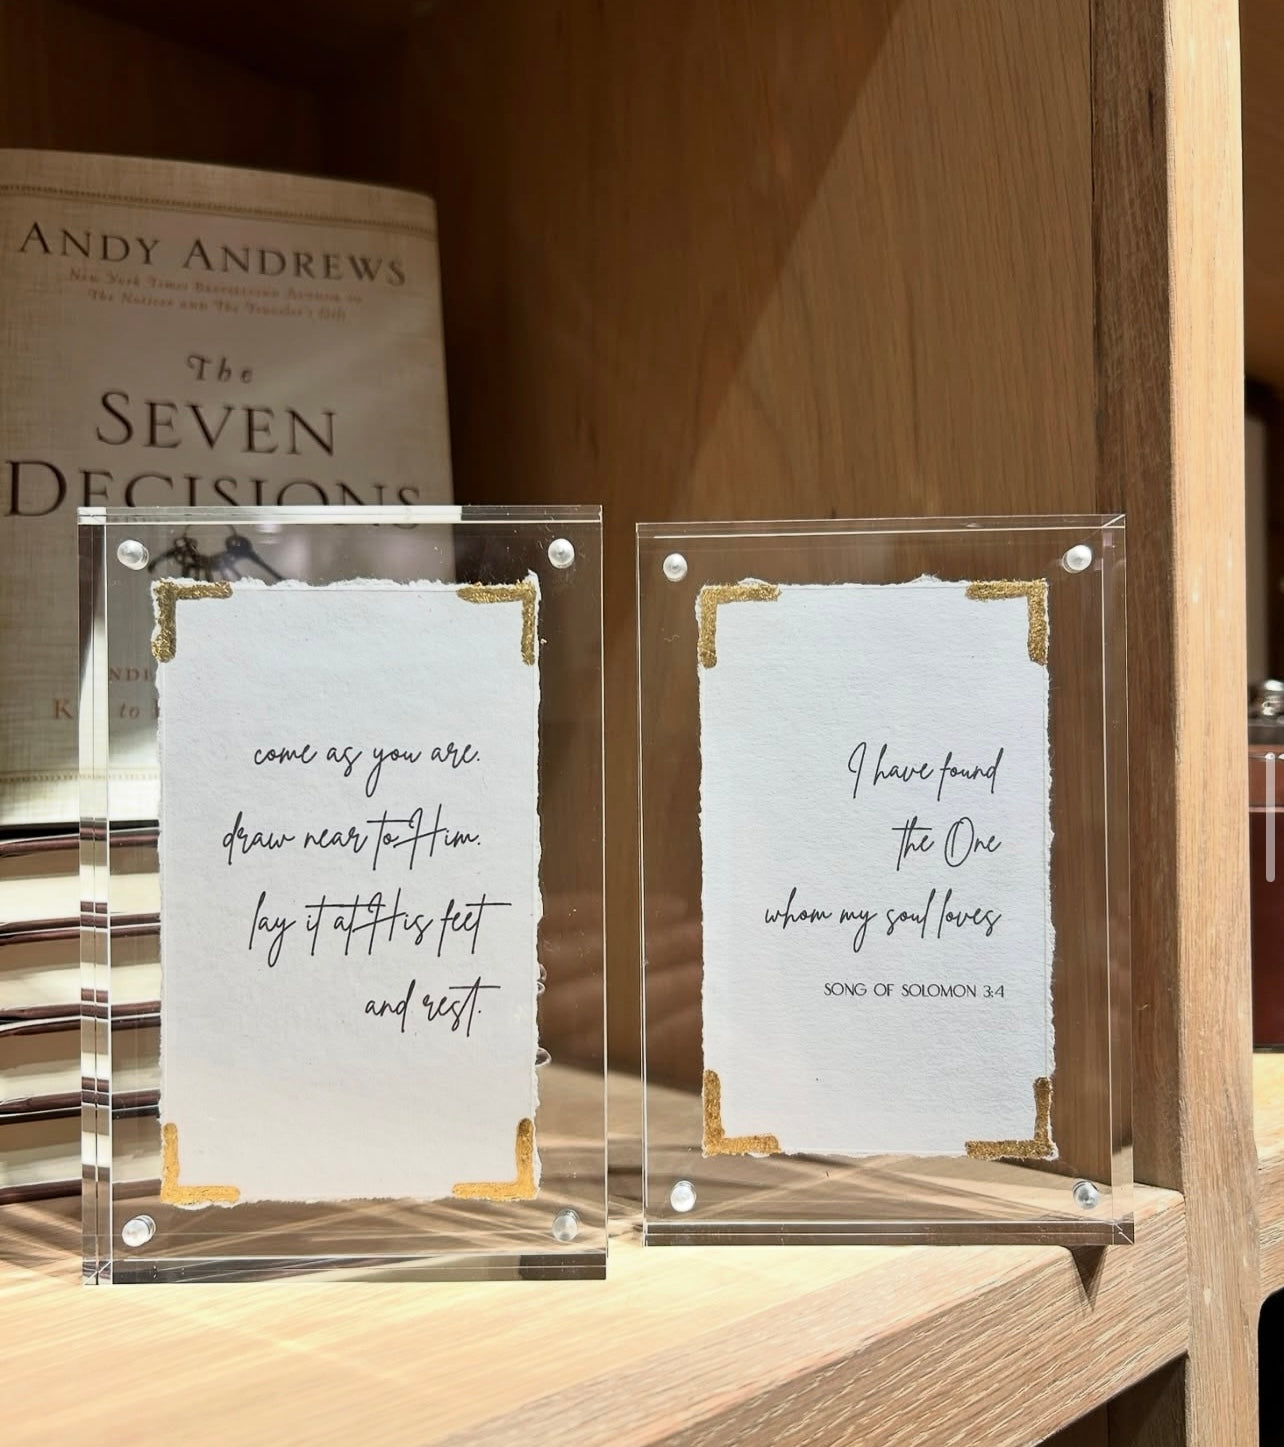 ANDY ANDREWS
New York Times Bestselling Author of
The Noticer and The Traveler's Gift
The
SEVEN
DECISIONS
K to
come as you are.
draw near to Him.
lay it at His feet
and rest.
I have found
the One
whom my soul loves
SONG OF SOLOMON 3:4